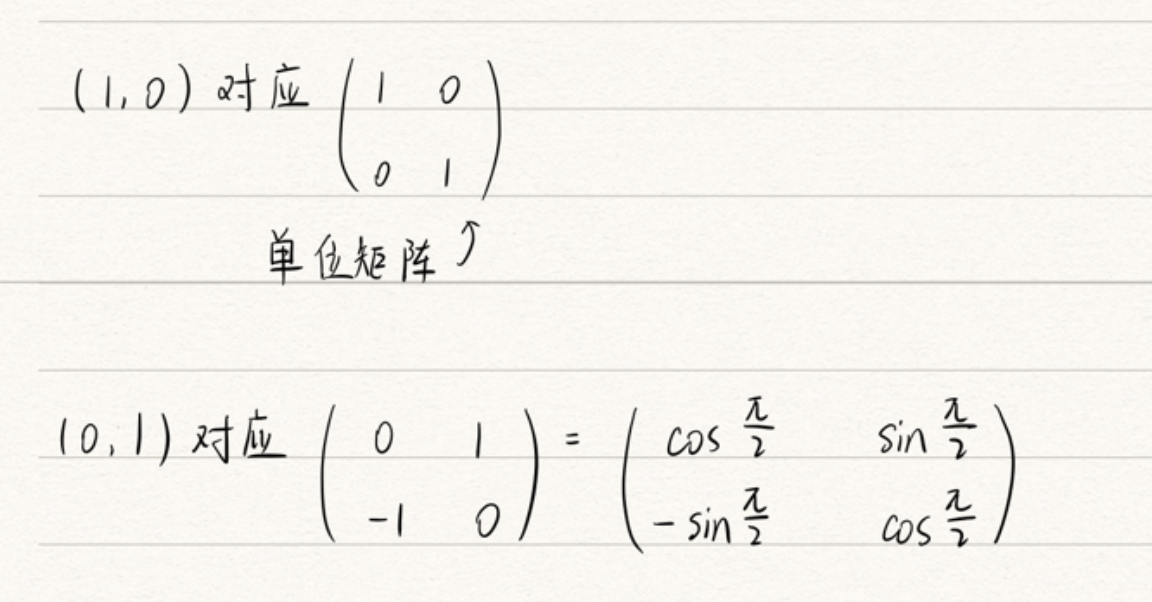 (1,0) 对应 ( 1 0
0 1 )
单位矩阵 ↑
(0,1) 对应 ( 0 1 = ( cos π/2 sin π/2
-1 0 ) - sin π/2 cos π/2 )